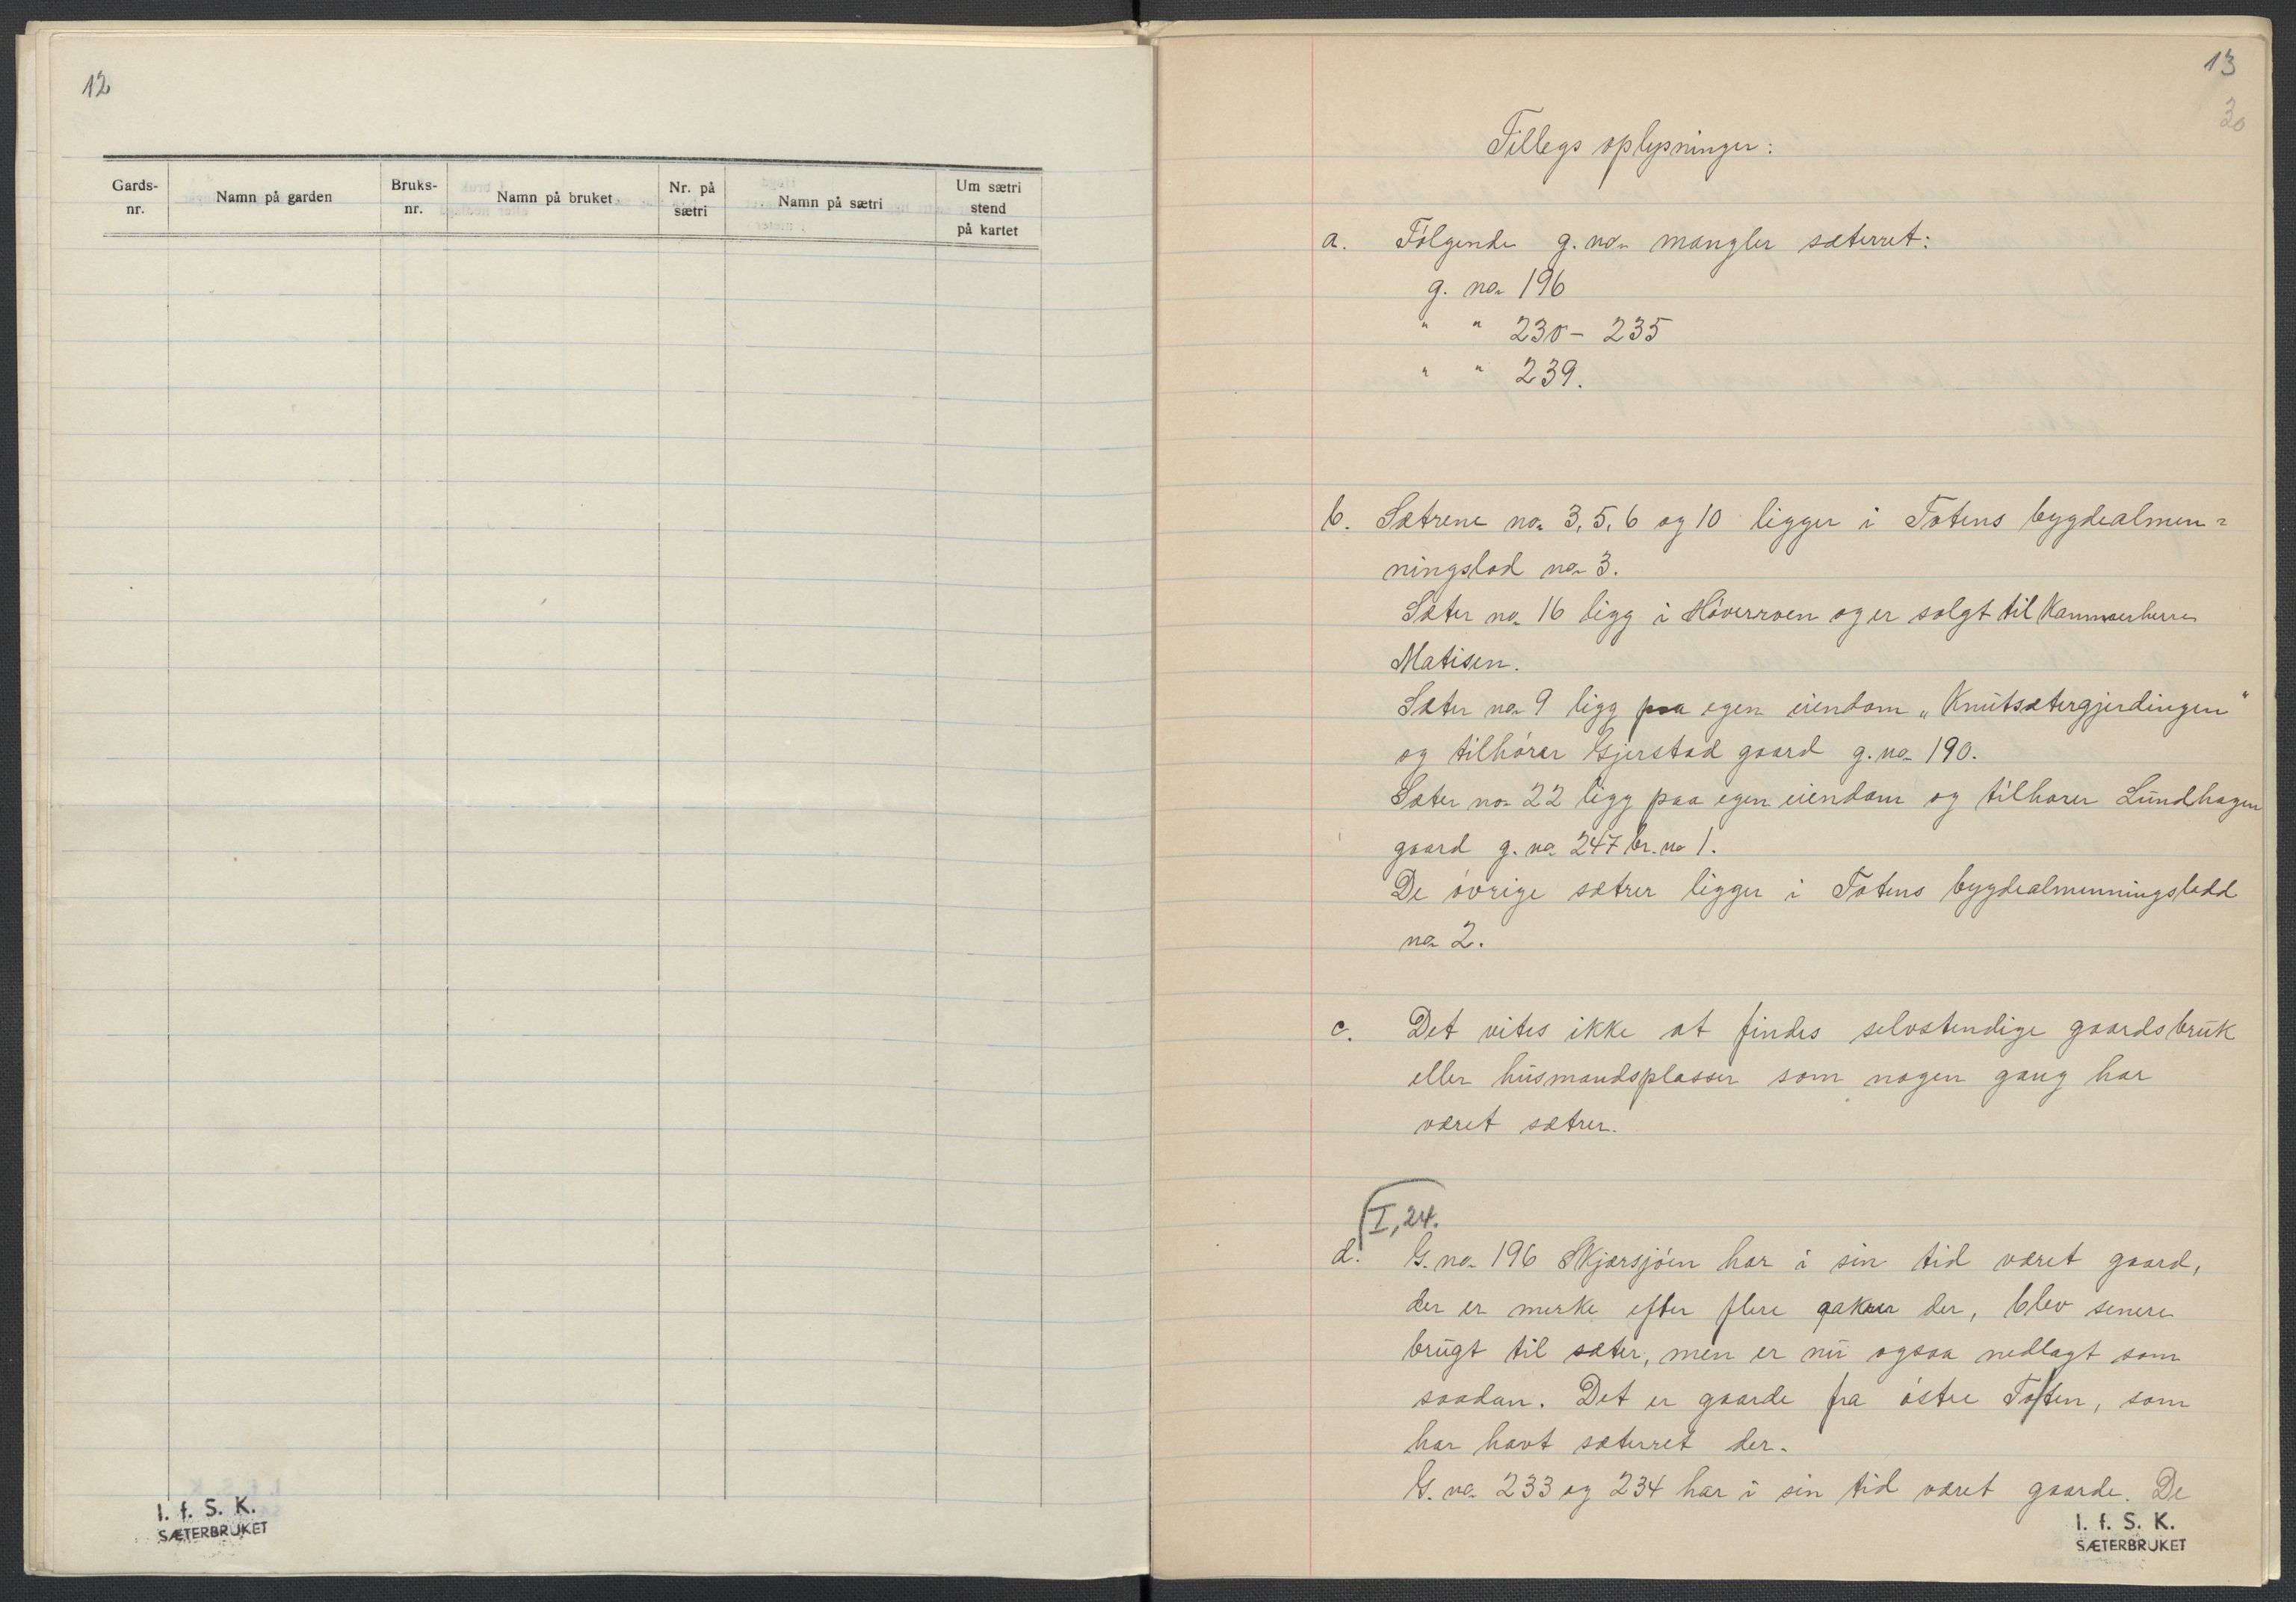 12
Gards-
nr.
Namn på garden
Bruks-
nr.
Namn på bruket
Nr. på
sætri
Namn på sætri
Um sætri
stend
på kartet
I. f. S. K.
SÆTERBRUKET
13
30
Tillegs oplysninger:
a. Følgende g. no. mangler sæterret:
g. no. 196
" " 230 - 235
" " 239.
b. Sætrene no. 3, 5, 6 og 10 ligger i Totens bygdealmen=
ningslod no. 3.
Sæter no. 16 ligg i Høverroen og er solgt til Kammerherre
Matisen.
Sæter no. 9 ligg paa egen eiendom „Knutsætergjerdingen"
og tilhører Gjerstad gaard g. no. 190.
Sæter no. 22 ligg paa egen eiendom og tilhører Lundhagen
gaard g. no. 247 br. no 1.
De øvrige sætrer ligger i Totens bygdealmenningslodd
no. 2.
c. Det vites ikke at findes selvstendige gaardsbruk
eller husmandsplasser som nogen gang har
været sætrer.
I, 24.
d. G. no. 196 Skjærsjøen har i sin tid været gaard,
der er merke efter flere aakrer der, blev senere
brugt til sæter, men er nu ogsaa nedlagt som
saadan. Det er gaarde fra østre Toten, som
har havt sæterret der.
G. no. 233 og 234 har i sin tid været gaarde. De
I. f. S. K.
SÆTERBRUKET